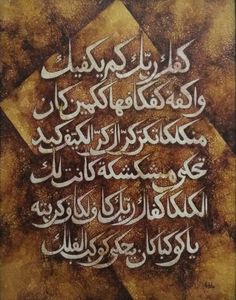 كفاك ربك كم يكفيك
واكفة كفكافها ككمين كان
منك لكا تكر كرا ككر الكر في كبد
تحكي مشكشكة كانت لك
الكلكا كفاك ربك كاف الكاف كربته
يا كوكبا كان يحكي كوكب الفلك